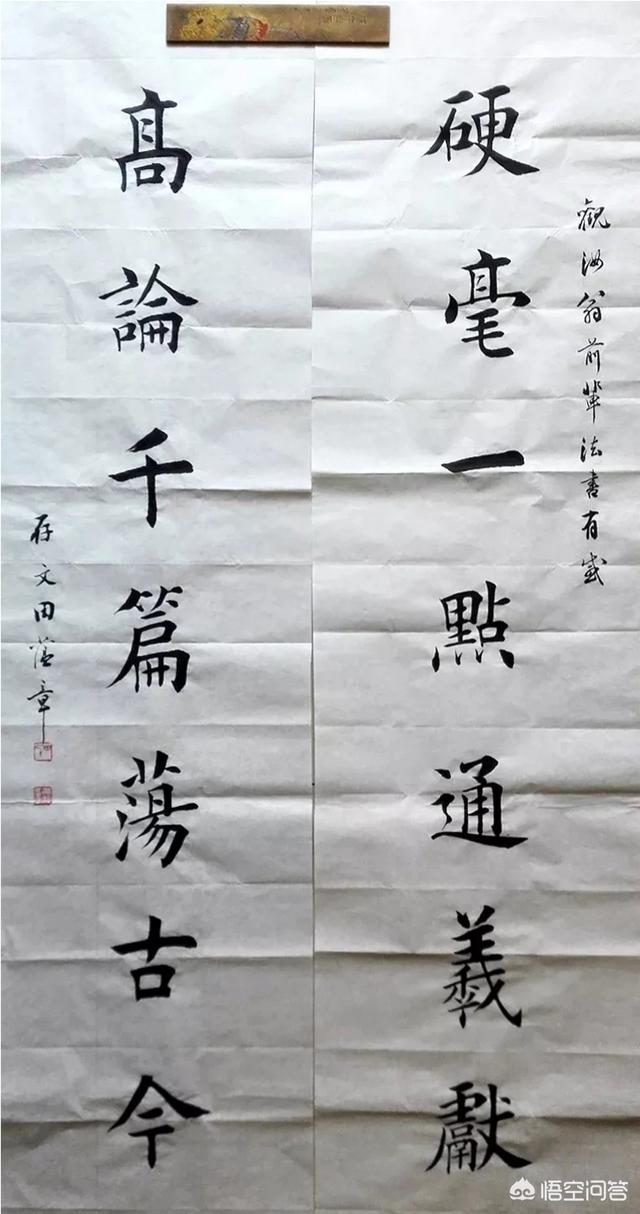 觀翁前輩法書有感
硬毫一點通羲獻
髙論千篇蕩古今
存文田蘊章
悟空问答